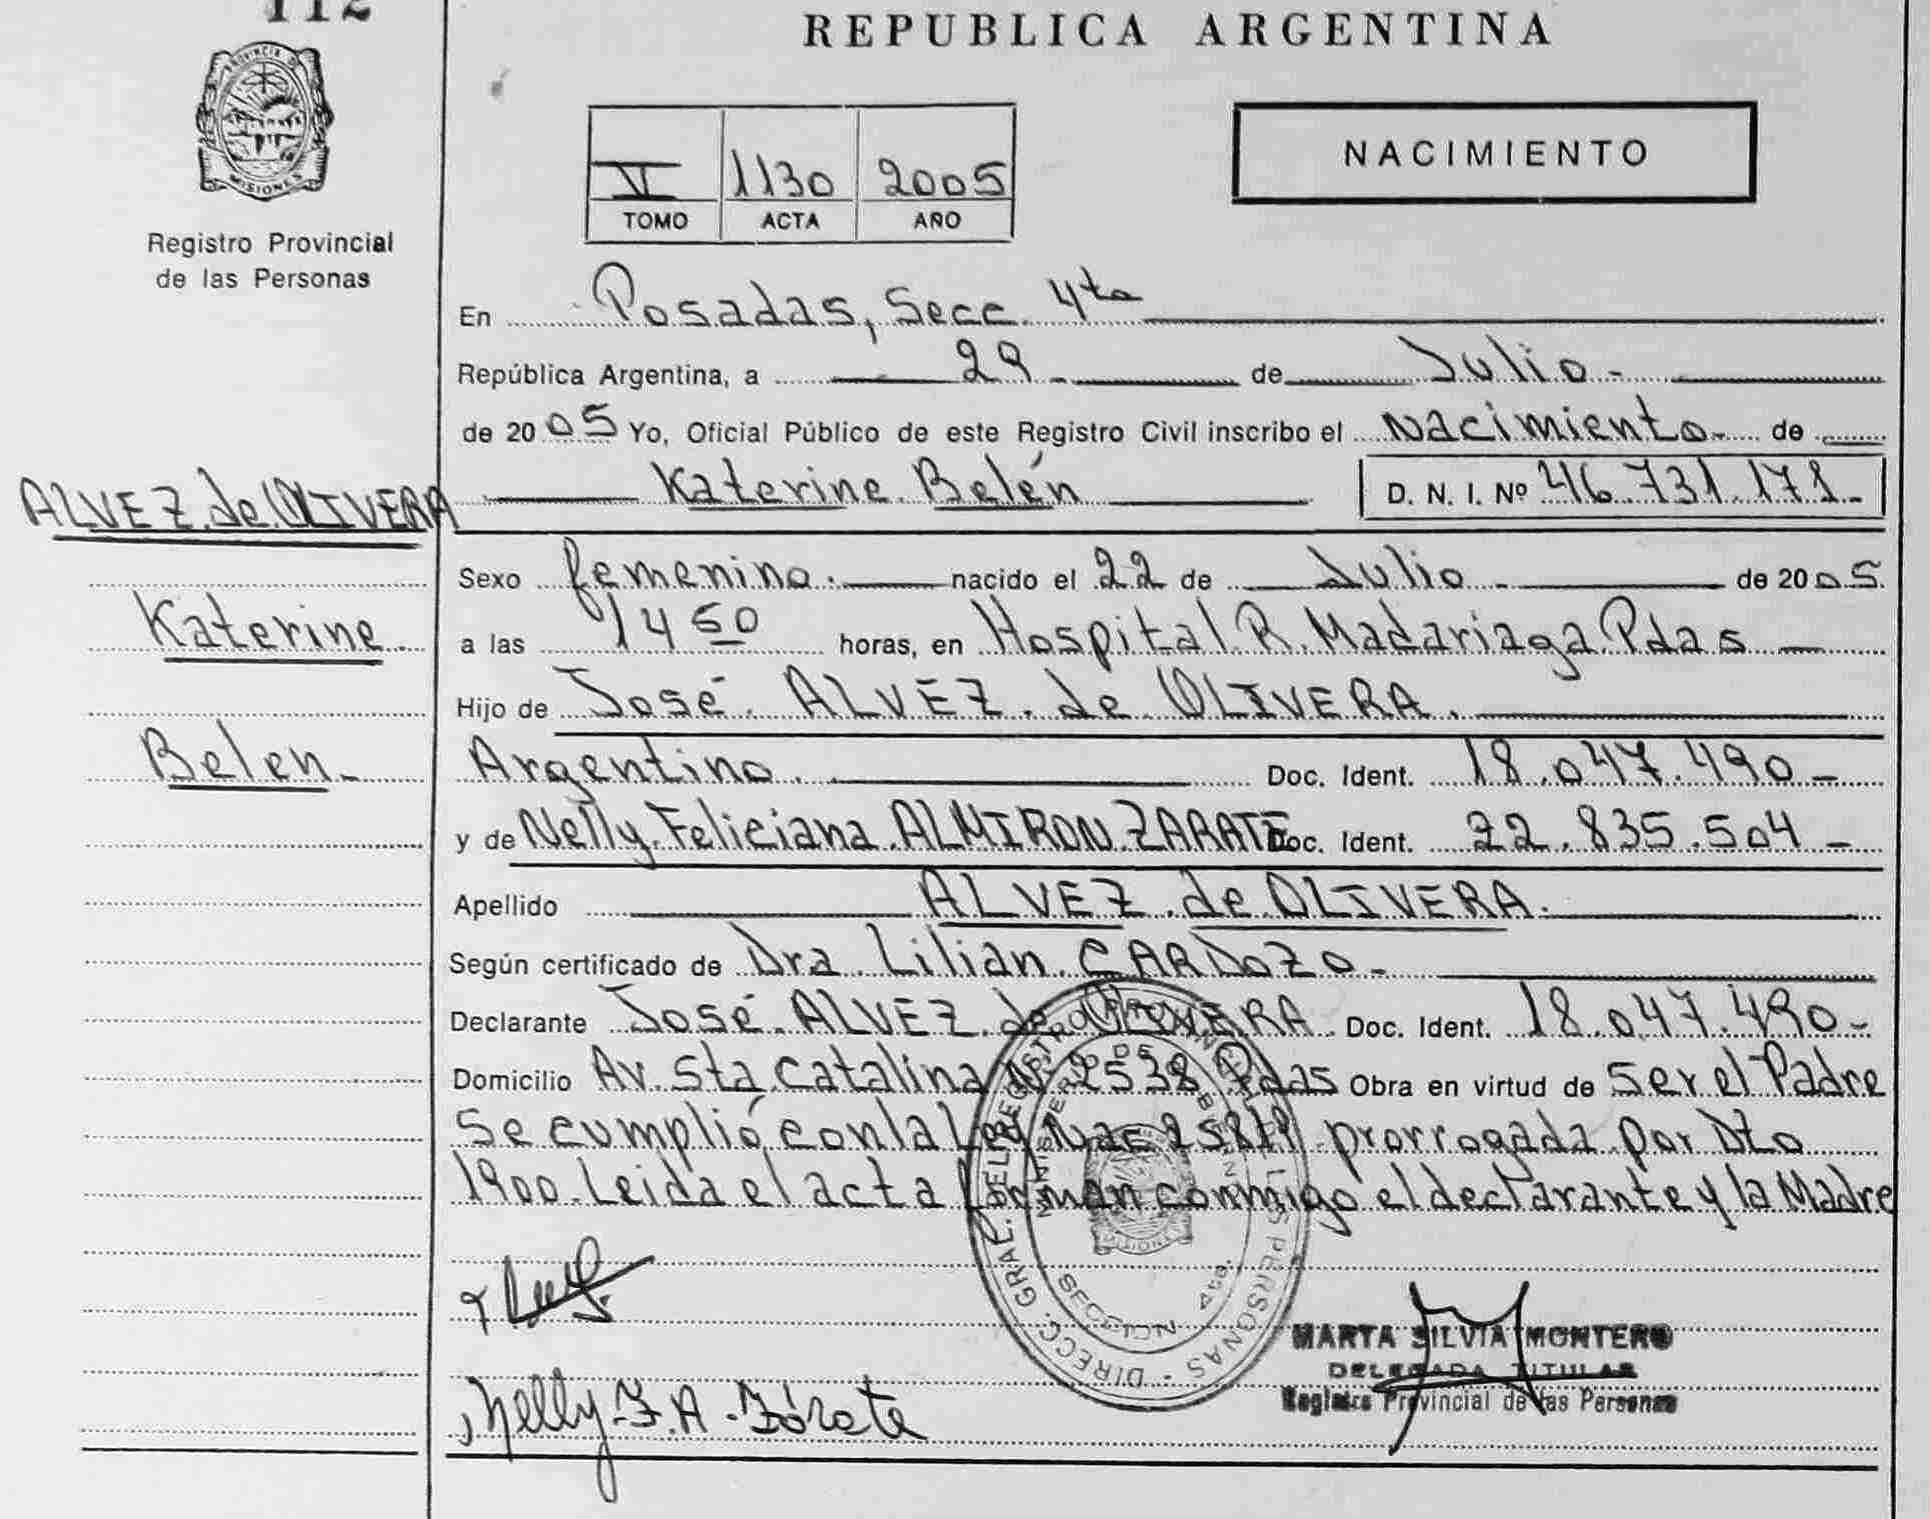 112
REPUBLICA ARGENTINA
PROVINCIA DE
MISIONES
Registro Provincial
de las Personas
VI 1130 2005
TOMO ACTA AÑO
NACIMIENTO
En Posadas, Secc. 4ta
República Argentina, a 29 de Julio
de 2005 Yo, Oficial Público de este Registro Civil inscribo el Nacimiento de
ALVEZ de OLIVERA
Katerine Belén D. N. I. Nº 46.731.171
Sexo femenino. nacido el 22 de Julio de 2005.
Katerine
a las 14 50 horas, en Hospital R. Madariaga Pdas
Hijo de José ALVEZ de OLIVERA.
Belen
Argentino. Doc. Ident. 18.047.490
y de Nelly Feliciana ALMIRON ZARATE Doc. Ident. 22.835.504
Apellido ALVEZ de OLIVERA.
Según certificado de Dra Lilian CARDOZO
Declarante José ALVEZ de OLIVERA Doc. Ident. 18.047.490
Domicilio Av. Sta Catalina Nº 2538 Pdas Obra en virtud de Ser el Padre
Se cumplió con la Ley Nac 25819 prorrogada por Dto
1900. Leida el acta firman conmigo el declarante y la Madre
DIRECC. GRAL. DEL REGISTRO PROVINCIAL DE LAS PERSONAS
MINISTERIO DE GOBIERNO
MISIONES
SECCION 4ta.
MARTA SILVIA MONTERO
DELEGADA TITULAR
Registro Provincial de las Personas
Nelly F. A. Zárate